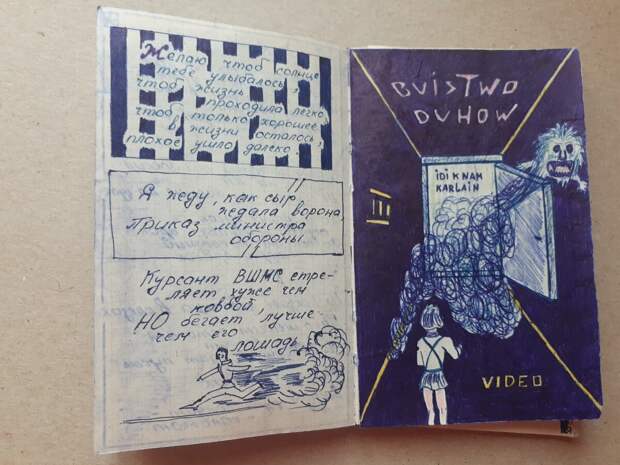 Желаю, чтоб солнце
тебе улыбалось,
чтоб жизнь
проходила легко,
чтоб только хорошее
в жизни осталось,
плохое ушло далеко.
Я жду, как сыр
ждала ворона
Приказ министра
обороны.
Курсант ВШМС стре-
ляет хуже чем
ковбой,
НО бегает лучше
чем его
лошадь
BUISTWO
DUHOW
IDI K NAM
KARLAIN
III
VIDEO